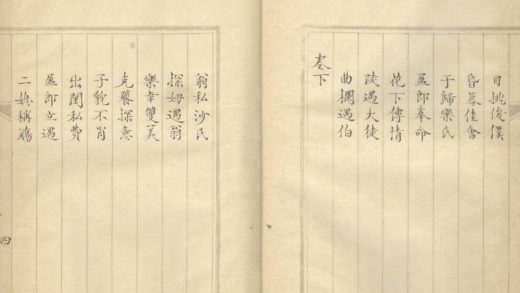 目挑俊僕
昏暮佳會
于歸欒氏
盈郎奉命
花下傳情
陡遇大徒
曲欄遇伯
卷下
翁私沙氏
探姆遇翁
樂幸雙美
克饔探意
子貌不肖
出閨私費
盈郎立遇
二媳稱觴
四